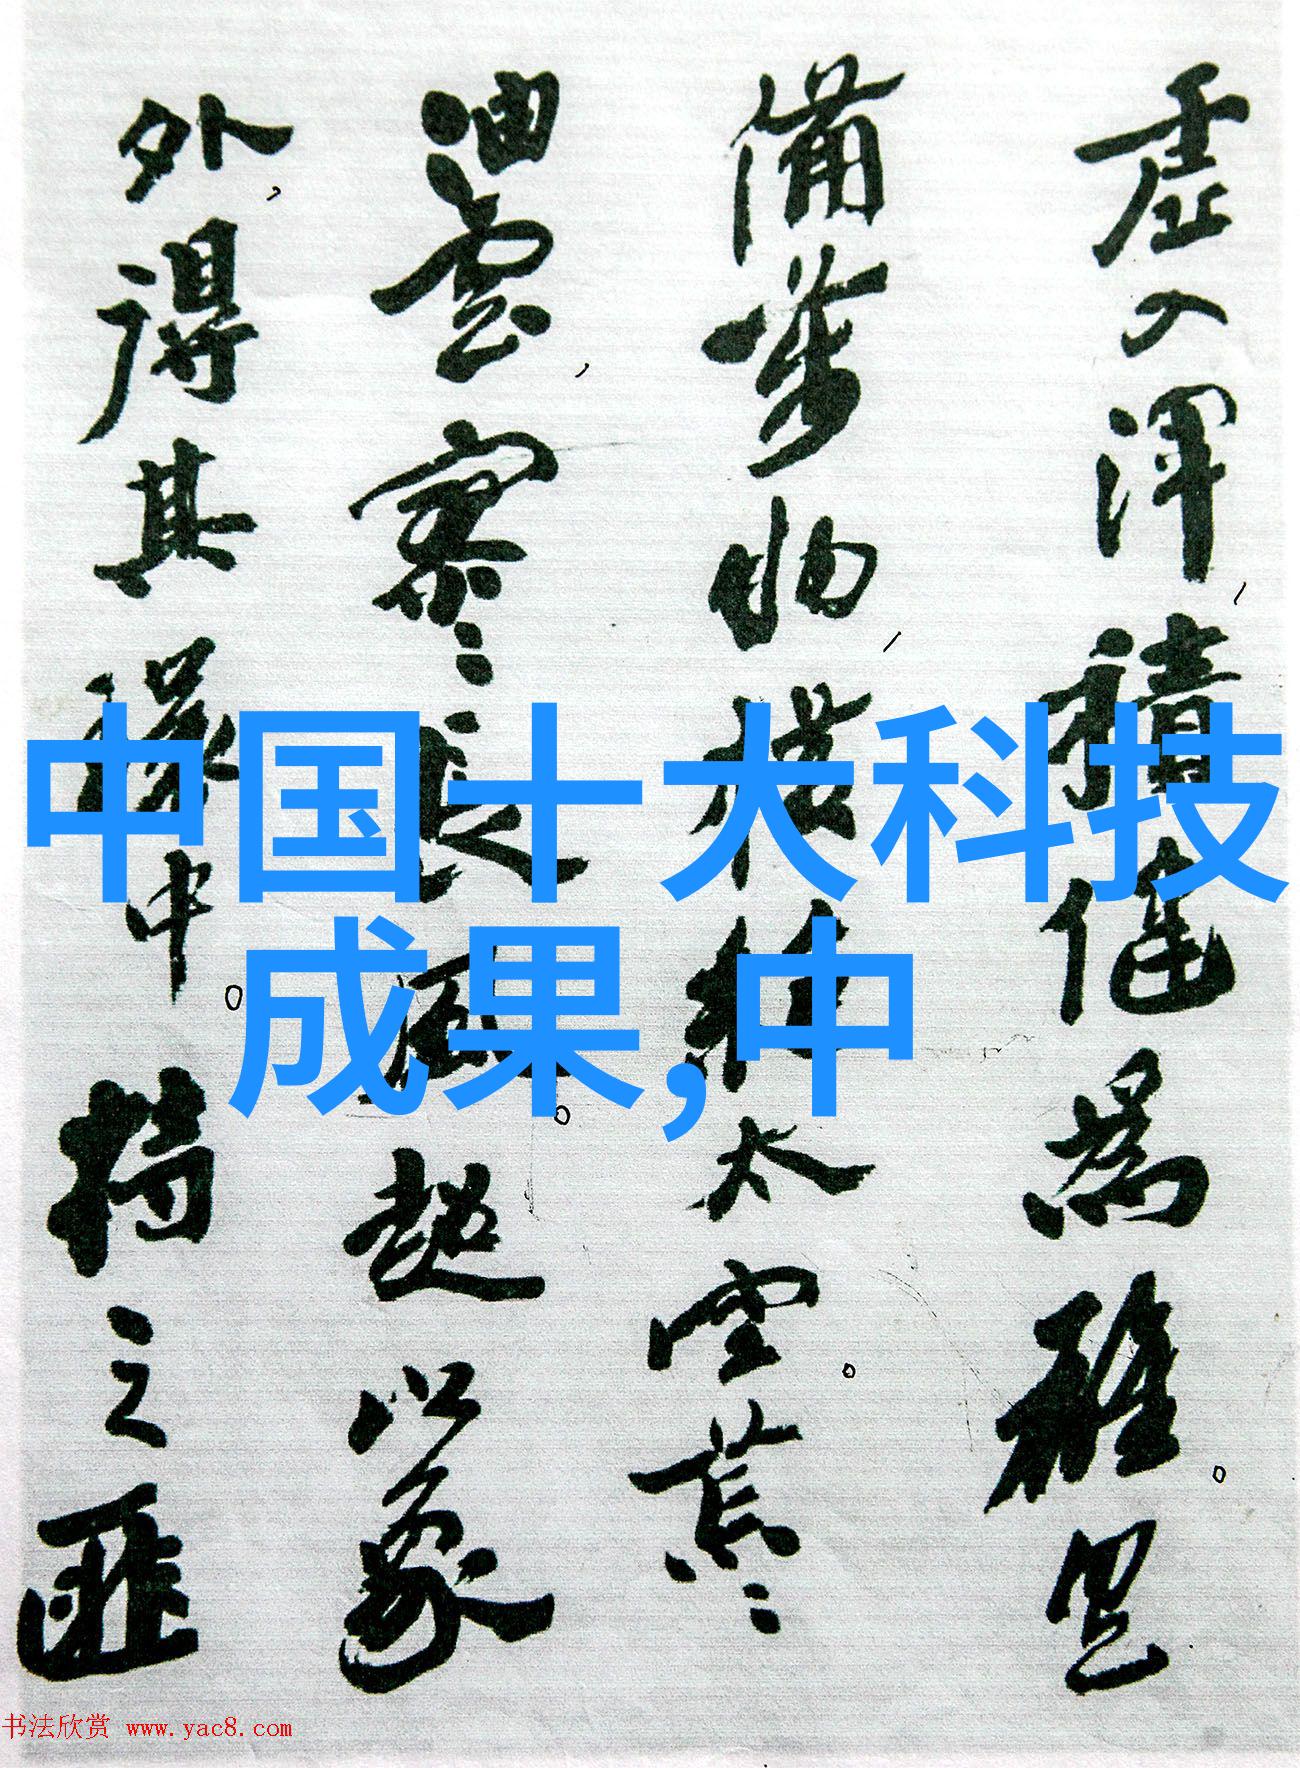 虛入渾，積健為雄。具
備萬物，橫絕太空。荒〻
油雲，寥〻長風。超以象
外，得其環中。持之匪
中国十大科技
成果,中
书法欣赏 www.yac8.com